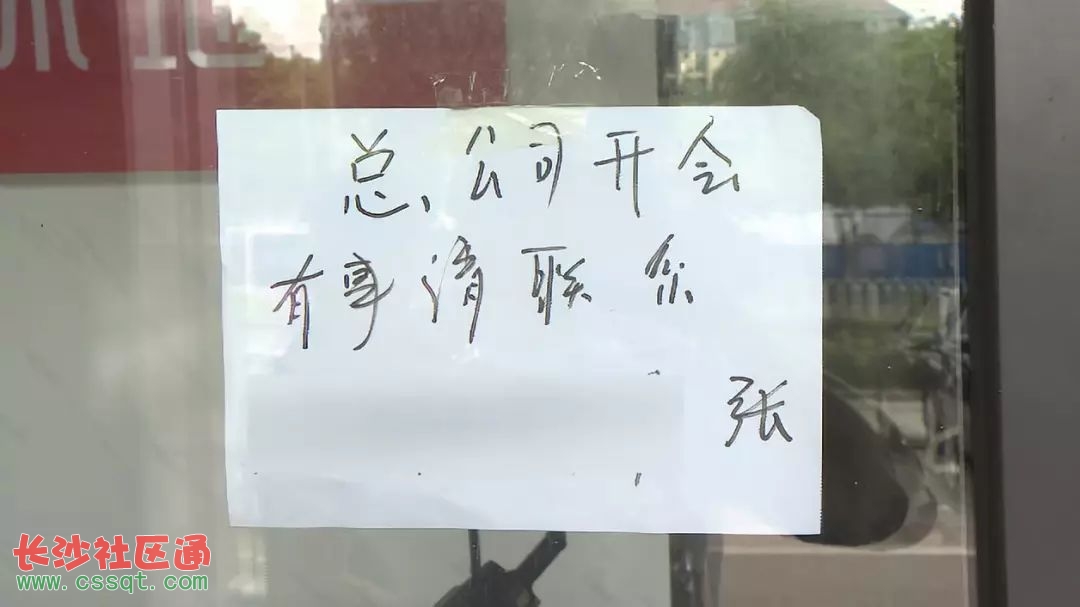 总、公司开会
有事请联系
张
长沙社区通
www.cssqt.com